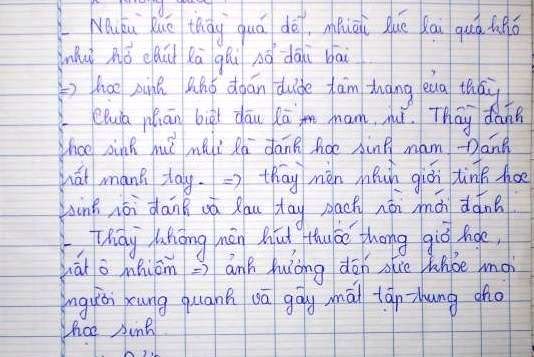 - Nhiều lúc thầy quá dễ, nhiều lúc lại quá khó
như hở chút là ghi sổ đầu bài
=> học sinh khó đoán được tâm trạng của thầy
- Chưa phân biệt đâu là nam, nữ. Thầy đánh
học sinh nữ như là đánh học sinh nam → Đánh
rất mạnh tay. => thầy nên nhìn giới tính học
sinh rồi đánh và lau tay sạch rồi mới đánh.
- Thầy không nên hút thuốc trong giờ học,
rất ô nhiễm => ảnh hưởng đến sức khỏe mọi
người xung quanh và gây mất tập trung cho
học sinh